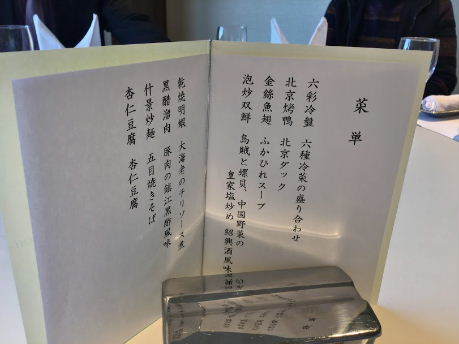 菜単
六彩冷盤 六種冷菜の盛り合わせ
北京烤鴨 北京ダック
金絲魚翅 ふかひれスープ
泡炒双鮮 烏賊と螺貝、中国野菜の
皇家塩炒め 紹興酒風味
乾焼明蝦 大海老のチリソース煮
黒醋溜肉 豚肉の鎮江黒酢風味
什景炒麺 五目焼きそば
杏仁豆腐 杏仁豆腐